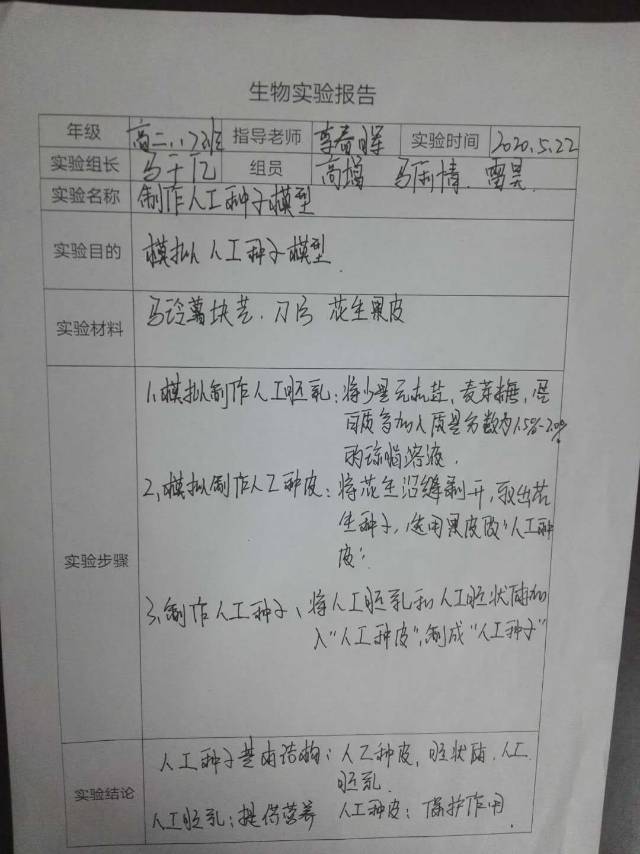 生物实验报告
年级 高二.17班 指导老师 李春晖 实验时间 2020.5.22
实验组长 马千亿 组员 高增 马雨情. 雷昊.
实验名称 制作人工种子模型
实验目的 模拟人工种子模型.
实验材料 马玲薯块茎. 刀片 花生果皮
实验步骤
1.模拟制作人工胚乳:将少量无机盐,麦芽糖,蛋
白质等加入质量分数为1.5%-2.0%
的琼脂溶液.
2.模拟制作人工种皮:将花生沿缝剥开,取出花
生种子,选用果皮做"人工种
皮".
3.制作人工种子、将人工胚乳和人工胚状体加
入"人工种皮",制成"人工种子"
实验结论
人工种子基本结构:人工种皮,胚状体.人工
胚乳.
人工胚乳:提供营养 人工种皮:保护作用.